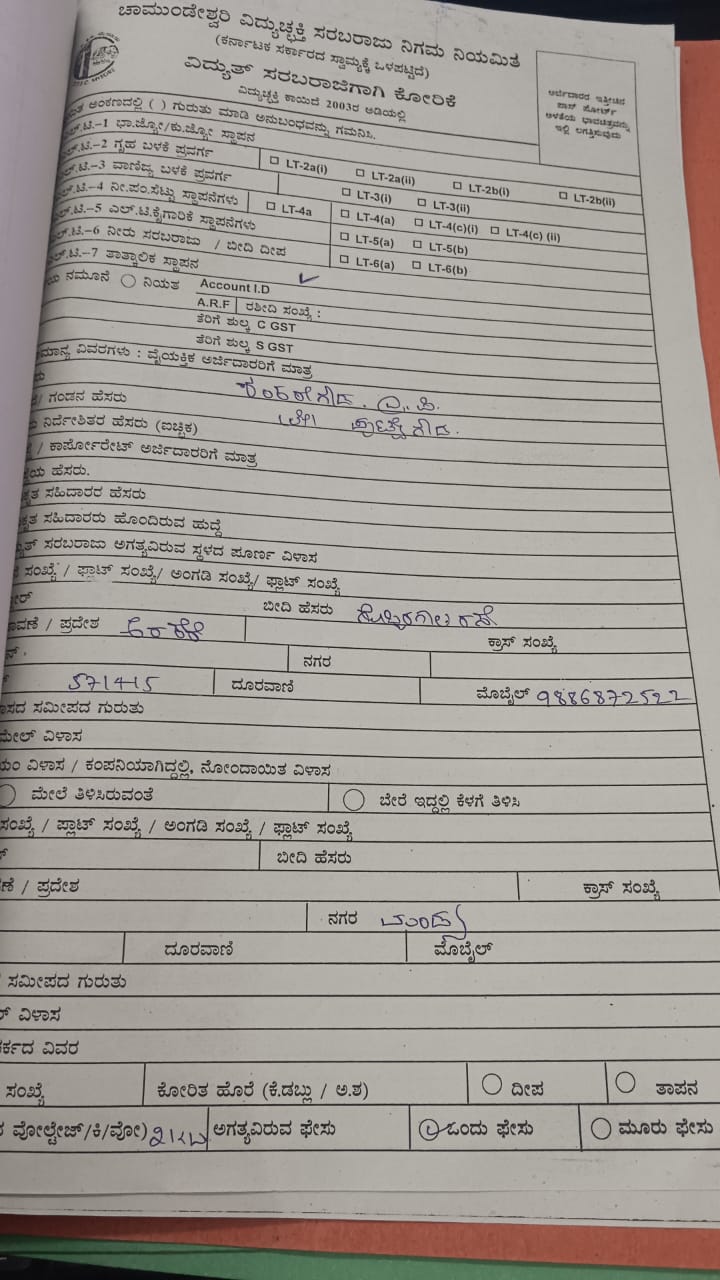 ಚಾಮುಂಡೇಶ್ವರಿ ವಿದ್ಯುಚ್ಛಕ್ತಿ ಸರಬರಾಜು ನಿಗಮ ನಿಯಮಿತ
(ಕರ್ನಾಟಕ ಸರ್ಕಾರದ ಸ್ವಾಮ್ಯಕ್ಕೆ ಒಳಪಟ್ಟಿದೆ)
ವಿದ್ಯುತ್ ಸರಬರಾಜಿಗಾಗಿ ಕೋರಿಕೆ
ವಿದ್ಯುಚ್ಛಕ್ತಿ ಕಾಯಿದೆ 2003ರ ಅಡಿಯಲ್ಲಿ
ಅರ್ಜಿದಾರರ ಇತ್ತೀಚಿನ
ಪಾಸ್ ಪೋರ್ಟ್
ಅಳತೆಯ ಭಾವಚಿತ್ರವನ್ನು
ಇಲ್ಲಿ ಲಗತ್ತಿಸುವುದು
ಅಂಕಣದಲ್ಲಿ ( ) ಗುರುತು ಮಾಡಿ ಅನುಬಂಧವನ್ನು ಗಮನಿಸಿ.
ಎಲ್.ಟಿ.-1 ಭಾ.ಜ್ಯೋ/ಕು.ಜ್ಯೋ ಸ್ಥಾಪನ
ಎಲ್.ಟಿ.-2 ಗೃಹ ಬಳಕೆ ಪ್ರವರ್ಗ LT-2a(i) LT-2a(ii) LT-2b(i) LT-2b(ii)
ಎಲ್.ಟಿ.-3 ವಾಣಿಜ್ಯ ಬಳಕೆ ಪ್ರವರ್ಗ LT-3(i) LT-3(ii)
ಎಲ್.ಟಿ.-4 ನೀ.ಪಂ.ಸೆಟ್ಟು ಸ್ಥಾಪನೆಗಳು LT-4a LT-4(a) LT-4(c)(i) LT-4(c) (ii)
ಎಲ್.ಟಿ.-5 ಎಲ್.ಟಿ.ಕೈಗಾರಿಕೆ ಸ್ಥಾಪನೆಗಳು LT-5(a) LT-5(b)
ಎಲ್.ಟಿ.-6 ನೀರು ಸರಬರಾಜು / ಬೀದಿ ದೀಪ LT-6(a) LT-6(b)
ಎಲ್.ಟಿ.-7 ತಾತ್ಕಾಲಿಕ ಸ್ಥಾಪನ
ನಮೂನೆ ನಿಯತ Account I.D
A.R.F ರಶೀದಿ ಸಂಖ್ಯೆ :
ತೆರಿಗೆ ಶುಲ್ಕ C GST
ತೆರಿಗೆ ಶುಲ್ಕ S GST
ಮಾನ್ಯ ವಿವರಗಳು : ವೈಯಕ್ತಿಕ ಅರ್ಜಿದಾರರಿಗೆ ಮಾತ್ರ
/ ಗಂಡನ ಹೆಸರು
ನಿರ್ದೇಶಿತರ ಹೆಸರು (ಐಚ್ಛಿಕ)
/ ಕಾರ್ಪೋರೇಟ್ ಅರ್ಜಿದಾರರಿಗೆ ಮಾತ್ರ
ಯ ಹೆಸರು.
ಕೃತ ಸಹಿದಾರರ ಹೆಸರು
ಕೃತ ಸಹಿದಾರರು ಹೊಂದಿರುವ ಹುದ್ದೆ
ತ್ ಸರಬರಾಜು ಅಗತ್ಯವಿರುವ ಸ್ಥಳದ ಪೂರ್ಣ ವಿಳಾಸ
ಸಂಖ್ಯೆ / ಫ್ಲಾಟ್ ಸಂಖ್ಯೆ/ ಅಂಗಡಿ ಸಂಖ್ಯೆ/ ಫ್ಲಾಟ್ ಸಂಖ್ಯೆ
ಬೀದಿ ಹೆಸರು
ಾವಣೆ / ಪ್ರದೇಶ ಕ್ರಾಸ್ ಸಂಖ್ಯೆ
ನಗರ
571415 ದೂರವಾಣಿ ಮೊಬೈಲ್ 9886872522
ಸದ ಸಮೀಪದ ಗುರುತು
ಮೇಲ್ ವಿಳಾಸ
ಯಂ ವಿಳಾಸ / ಕಂಪನಿಯಾಗಿದ್ದಲ್ಲಿ, ನೋಂದಾಯಿತ ವಿಳಾಸ
ಮೇಲೆ ತಿಳಿಸಿರುವಂತೆ ಬೇರೆ ಇದ್ದಲ್ಲಿ ಕೆಳಗೆ ತಿಳಿಸಿ
ಸಂಖ್ಯೆ / ಪ್ಲಾಟ್ ಸಂಖ್ಯೆ / ಅಂಗಡಿ ಸಂಖ್ಯೆ / ಫ್ಲಾಟ್ ಸಂಖ್ಯೆ
ಬೀದಿ ಹೆಸರು
ಣೆ / ಪ್ರದೇಶ ಕ್ರಾಸ್ ಸಂಖ್ಯೆ
ನಗರ ಮಂಡ್ಯ
ದೂರವಾಣಿ ಮೊಬೈಲ್
ಸಮೀಪದ ಗುರುತು
ವಿಳಾಸ
ರ್ಕದ ವಿವರ
ಸಂಖ್ಯೆ ಕೋರಿತ ಹೊರೆ (ಕೆ.ಡಬ್ಲು / ಅ.ಶ) ದೀಪ ತಾಪನ
ವೋಲ್ಟೇಜ್/ಕಿ/ವೋ) ಅಗತ್ಯವಿರುವ ಫೇಸು ಒಂದು ಫೇಸು ಮೂರು ಫೇಸು